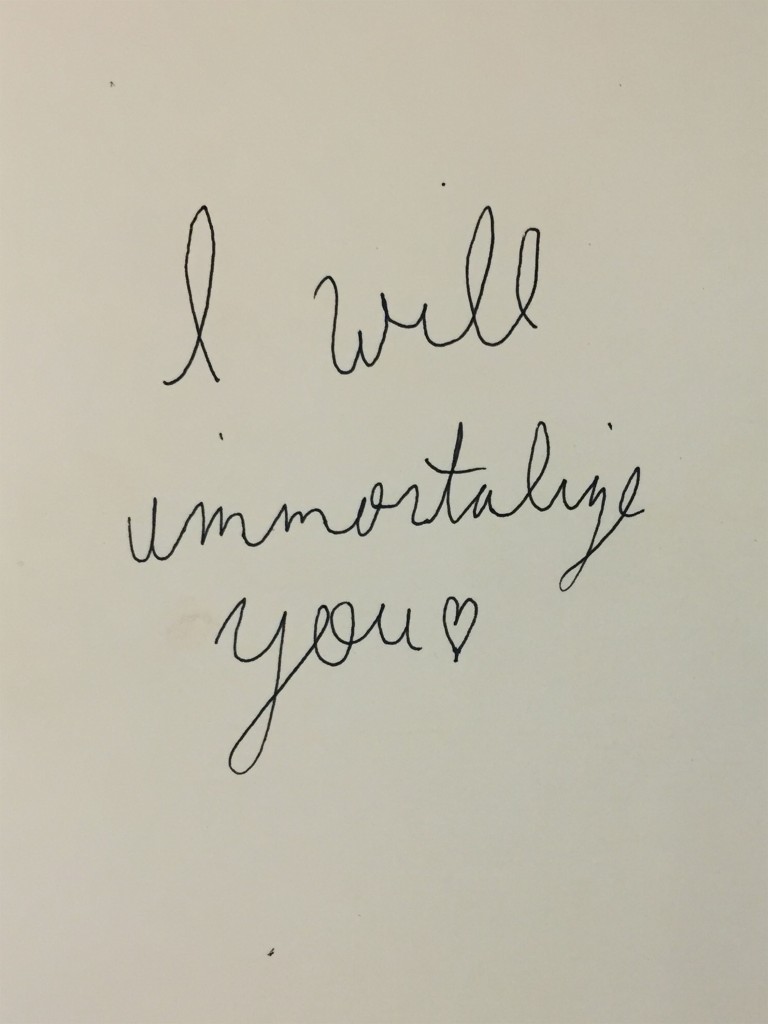 I will
immortalize
you♡